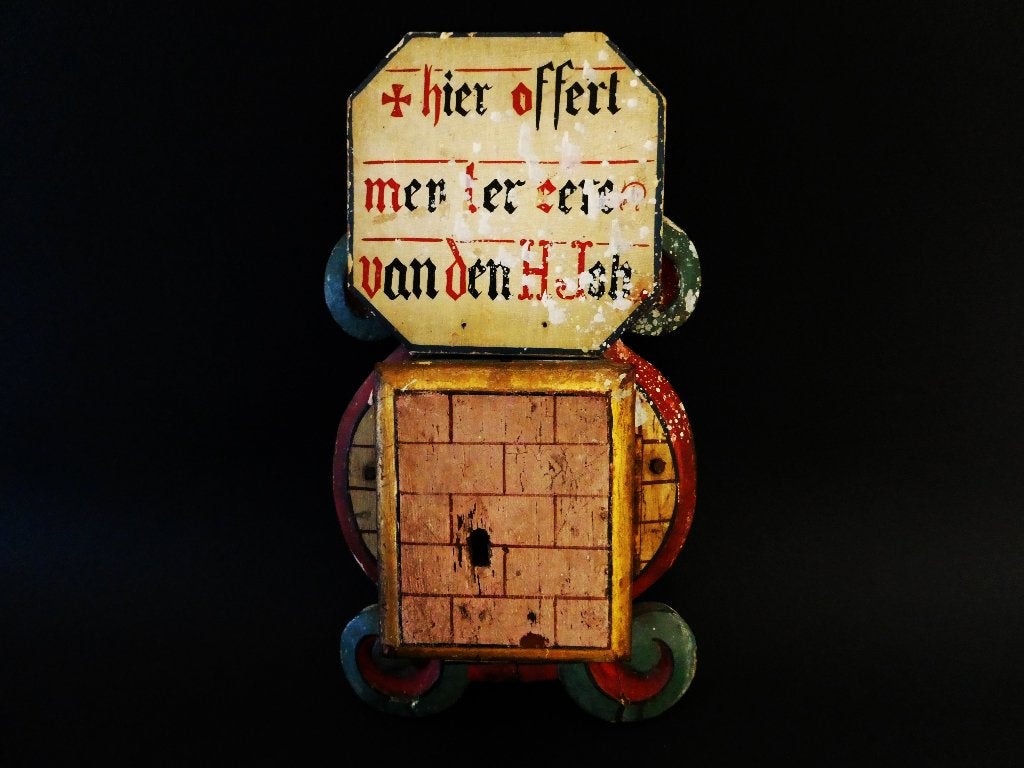 ✠ hier offert
men ter eeren
van den H. Joh.